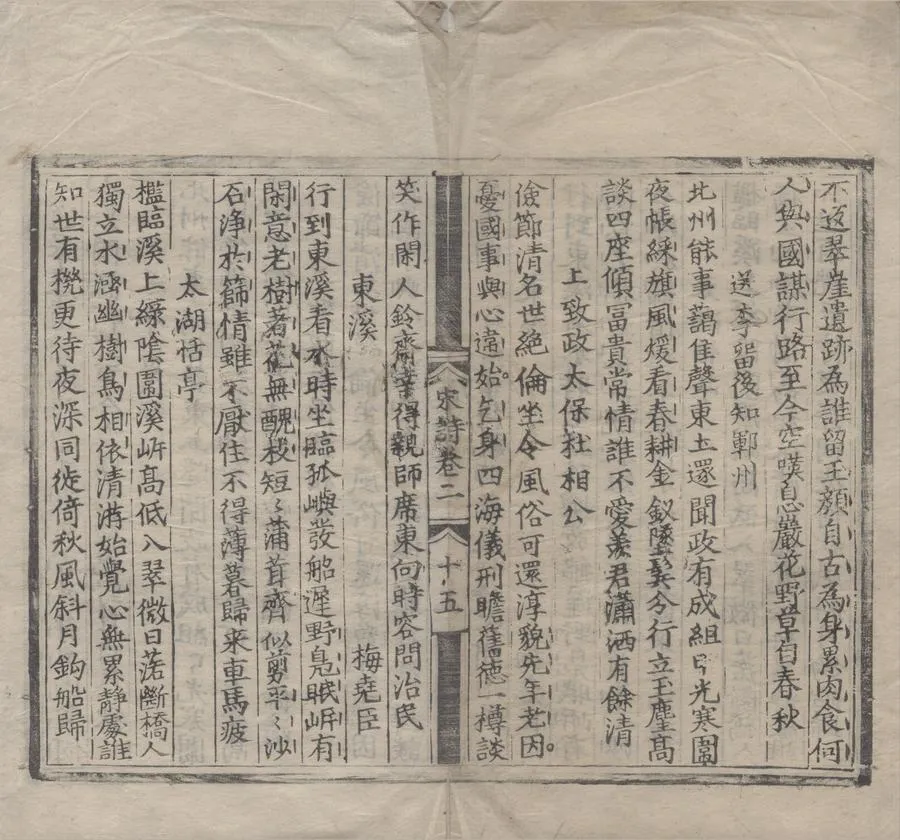 不返翠崖遺跡為誰留玉顏自古為身累肉食何
人與國謀行路至今空嘆息巖花野草自春秋
送李留後知鄆州
北州能事藹隹聲東土還聞政有成組甲光寒圍
夜帳綵旗風煖看春耕金釵墜鬢分行立玉麈高
談四座傾冨貴常情誰不愛羨君瀟洒有餘清
上致政太保杜相公
儉節清名世絶倫坐令風俗可還淳貌先年老因。
憂國事與心違始。乞身四海儀刑瞻舊德一樽談
宋詩卷二 十五
笑作閑人鈴齋幸得親師席東向時容問治民
東溪 梅堯臣
行到東溪看水時坐臨孤嶼發船遲野鳬眠岍有
閑意老樹著花無醜枝短〻蒲茸齊似剪平〻沙
石浄於篩情雖不厭住不得薄暮歸来車馬疲
太湖恬亭
檻臨溪上綠陰圍溪岍高低入翠微日落斷橋人
獨立水涵幽樹鳥相依清游始覺心無累静處誰
知世有機更待夜深同徙倚秋風斜月釣船歸